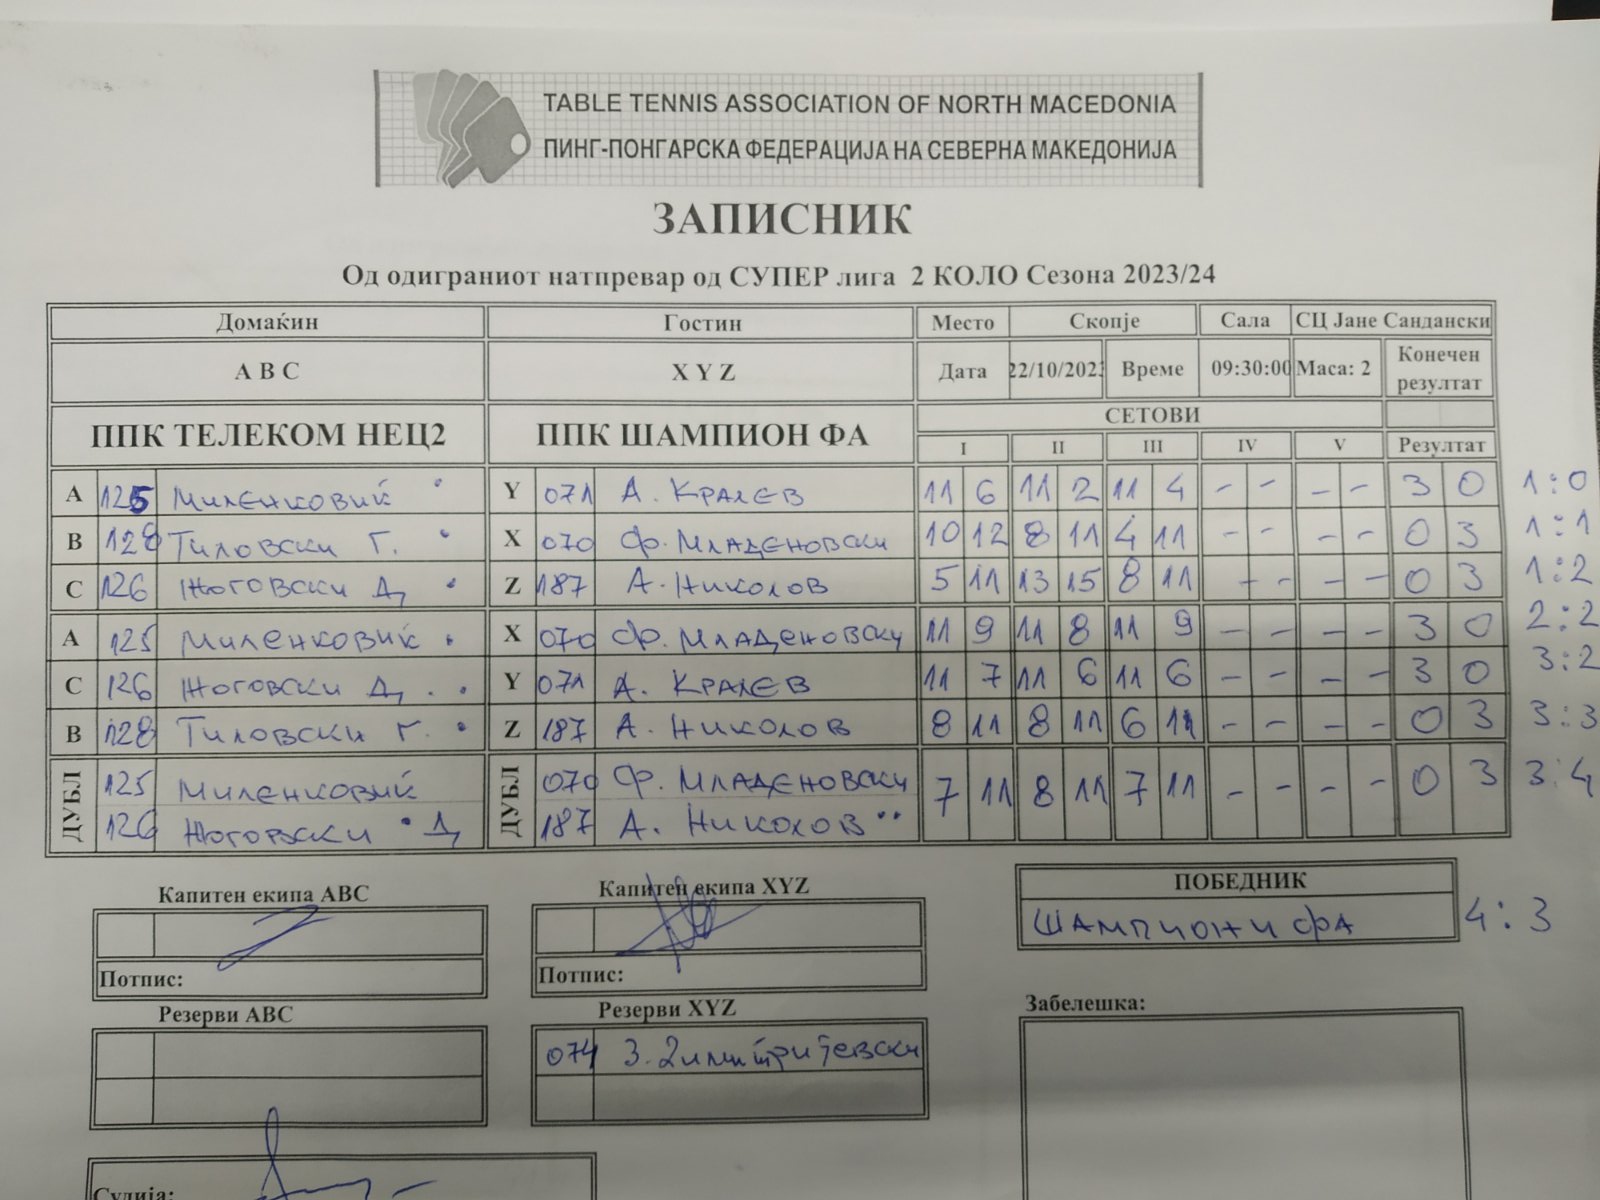 TABLE TENNIS ASSOCIATION OF NORTH MACEDONIA
ПИНГ-ПОНГАРСКА ФЕДЕРАЦИЈА НА СЕВЕРНА МАКЕДОНИЈА
ЗАПИСНИК
Од одиграниот натпревар од СУПЕР лига 2 КОЛО Сезона 2023/24
Домаќин Гостин Место Скопје Сала СЦ Јане Сандански
A B C X Y Z Дата 22/10/2023 Време 09:30:00 Маса: 2 Конечен резултат
ППК ТЕЛЕКОМ НЕЦ2 ППК ШАМПИОН ФА СЕТОВИ
I II III IV V Резултат
A 125 Миленковиќ Y 071 А. Кралев 11 6 11 2 11 4 - - - - 3 0 1:0
B 128 Тиловски Г. X 070 Ф. Младеновски 10 12 8 11 4 11 - - - - 0 3 1:1
C 126 Жоговски Д Z 187 А. Николов 5 11 13 15 8 11 - - - - 0 3 1:2
A 125 Миленковиќ X 070 Ф. Младеновски 11 9 11 8 11 9 - - - - 3 0 2:2
C 126 Жоговски Д. Y 071 А. Кралев 11 7 11 6 11 6 - - - - 3 0 3:2
B 128 Тиловски Г. Z 187 А. Николов 8 11 8 11 6 11 - - - - 0 3 3:3
ДУБЛ 125 Миленковиќ ДУБЛ 070 Ф. Младеновски 7 11 8 11 7 11 - - - - 0 3 3:4
126 Жоговски Д 187 А. Николов
Капитен екипа ABC Капитен екипа XYZ ПОБЕДНИК
Шампиони фа 4:3
Потпис: Потпис:
Резерви ABC Резерви XYZ Забелешка:
074 З.
Судија: